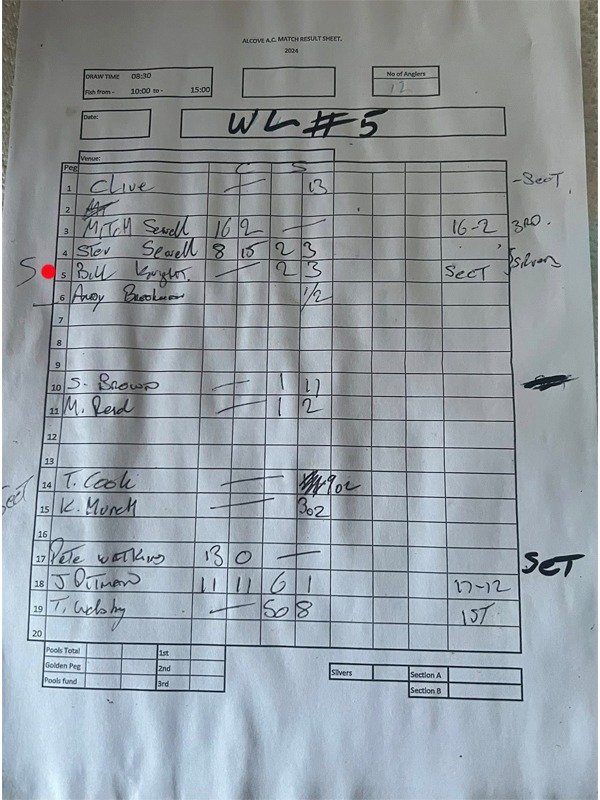 ALCOVE A.C. MATCH RESULT SHEET.
2024
DRAW TIME 08:30
Fish from - 10:00 to - 15:00
No of Anglers
12
Date:
WL #5
Venue:
Peg C S
1 Clive — 13 - SecT.
2
3 MITCH Sewell 16 2 — 16-2 3RD.
4 Stev Sewell 8 15 2 3
S 5 Bill Knight. — 2 3 SecT Silvers
6 Andy Brookman 1/2
7
8
9
10 S. BROWN — 1 11
11 M. Read — 1 2
12
13
SecT 14 T. Cook — 9oz
15 K. Munch — 3oz
16
17 Pete WATKINS 13 0 — SET
18 J Pitman 11 11 6 1 17-12
19 T. 50 8 1ST
20
Pools Total 1st
Golden Peg 2nd
Pools fund 3rd
Silvers Section A
Section B